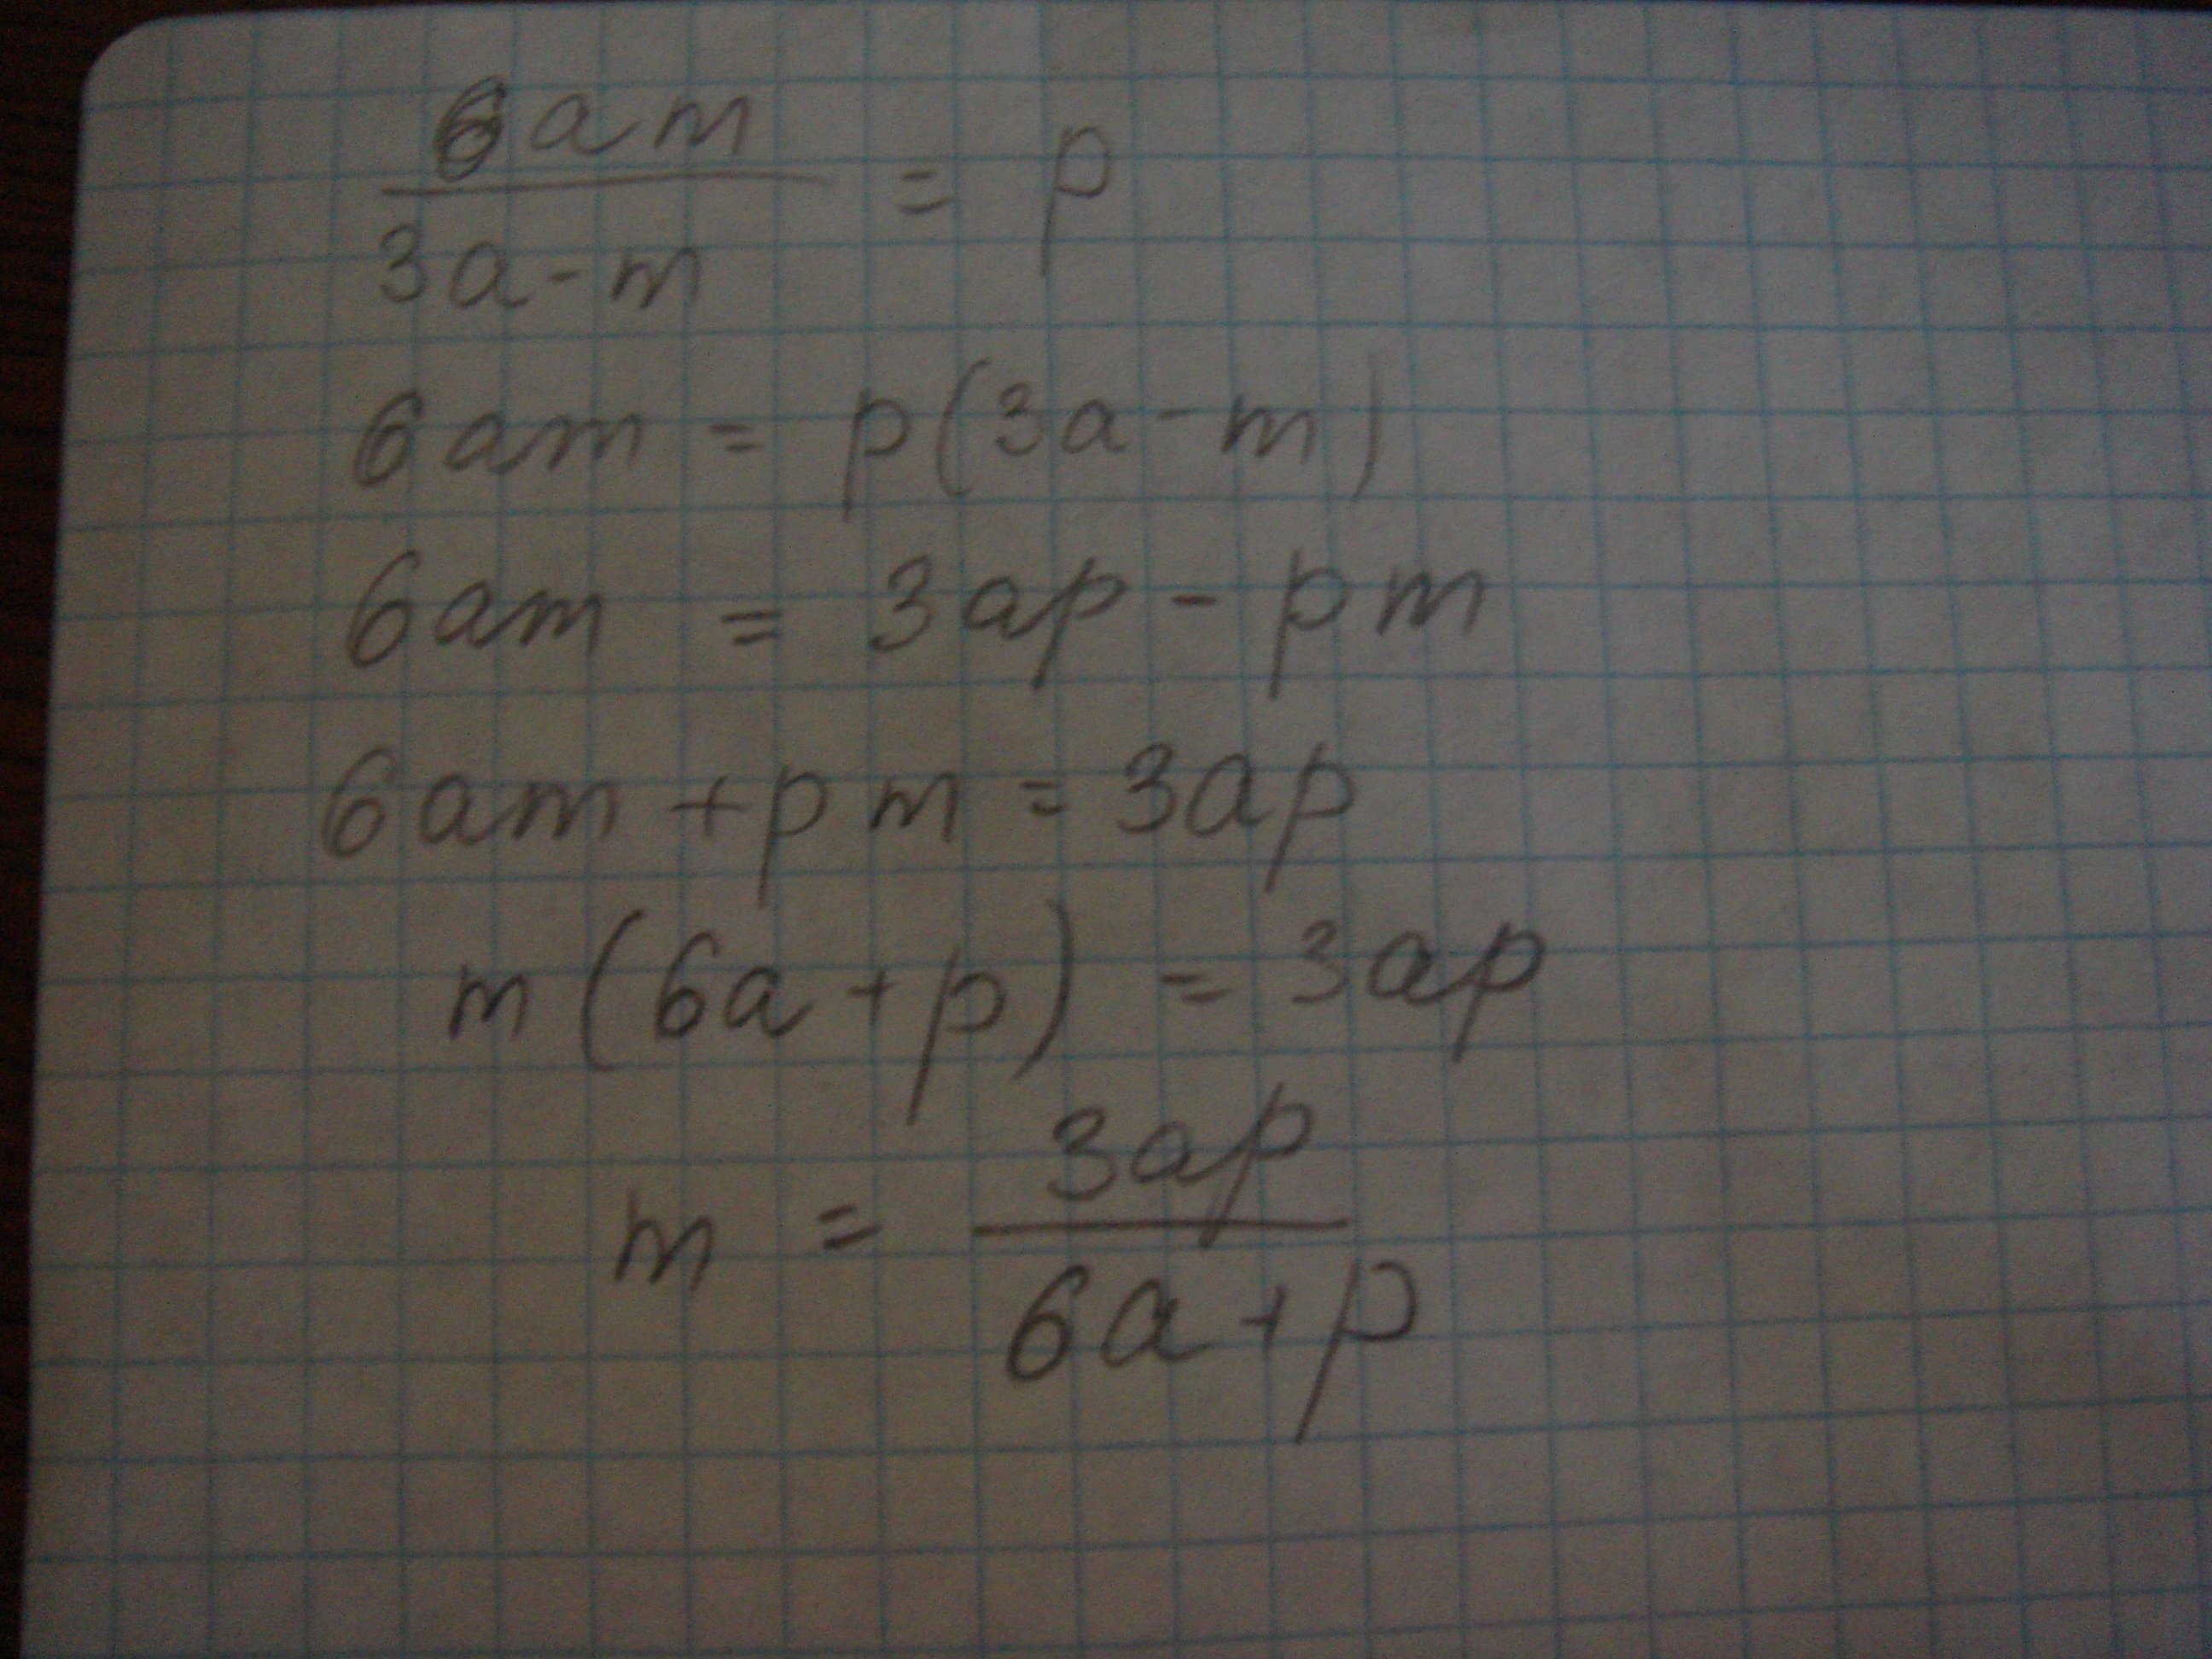 6am / 3a-m = p
6am = p(3a-m)
6am = 3ap - pm
6am + pm = 3ap
m(6a+p) = 3ap
m = 3ap / 6a+p